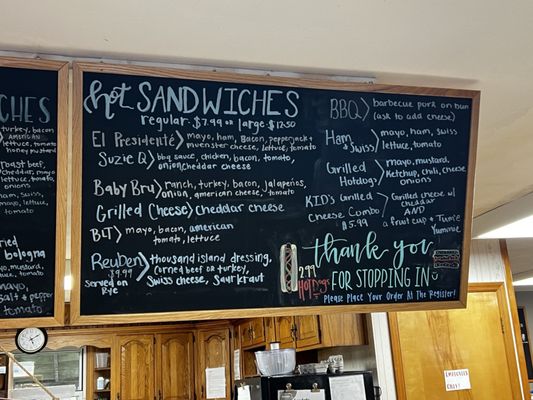 ICHES
turkey, bacon
AMERICAN
lettuce, tomato
honey mustard
roast beef,
cheddar, mayo
lettuce, tomato,
onions
mayo, ham,
swiss, lettuce,
tomato
bologna
mayo, mustard,
lettuce, tomato
mayo, bacon,
salt & pepper
tomato
hot SANDWICHES
regular $7.99 or large $12.50
El Presidenté > mayo, ham, Bacon, pepperjack +
muenster cheese, lettuce, tomato
Suzie Q > bbq sauce, chicken, bacon, tomato,
onion cheddar cheese
Baby Bru > ranch, turkey, bacon, jalapeños,
onion, american cheese, tomato
Grilled Cheese > cheddar cheese
BLT > mayo, bacon, american
tomato, lettuce
Reuben > thousand island dressing,
$9.99
corned beef or turkey,
served on
Swiss cheese, Saurkraut
Rye
BBQ > barbecue pork on bun
(ask to add cheese)
Ham
+ Swiss > mayo, ham, swiss
lettuce, tomato
Grilled
Hotdogs > mayo, mustard,
Ketchup, chili, cheese
onions
KID's Grilled
Cheese Combo
$5.99
Grilled cheese w/
cheddar
AND
a fruit cup +
Yummie
2.99
HOTDOGS
thank you
FOR STOPPING IN
Please Place Your Order At The Register!
EMPLOYEES
ONLY!